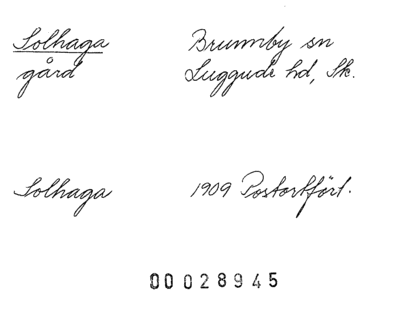 Solhaga Brunnby sn
gård Luggude hd, Sk.
Solhaga 1909 Postortfört.
00028945